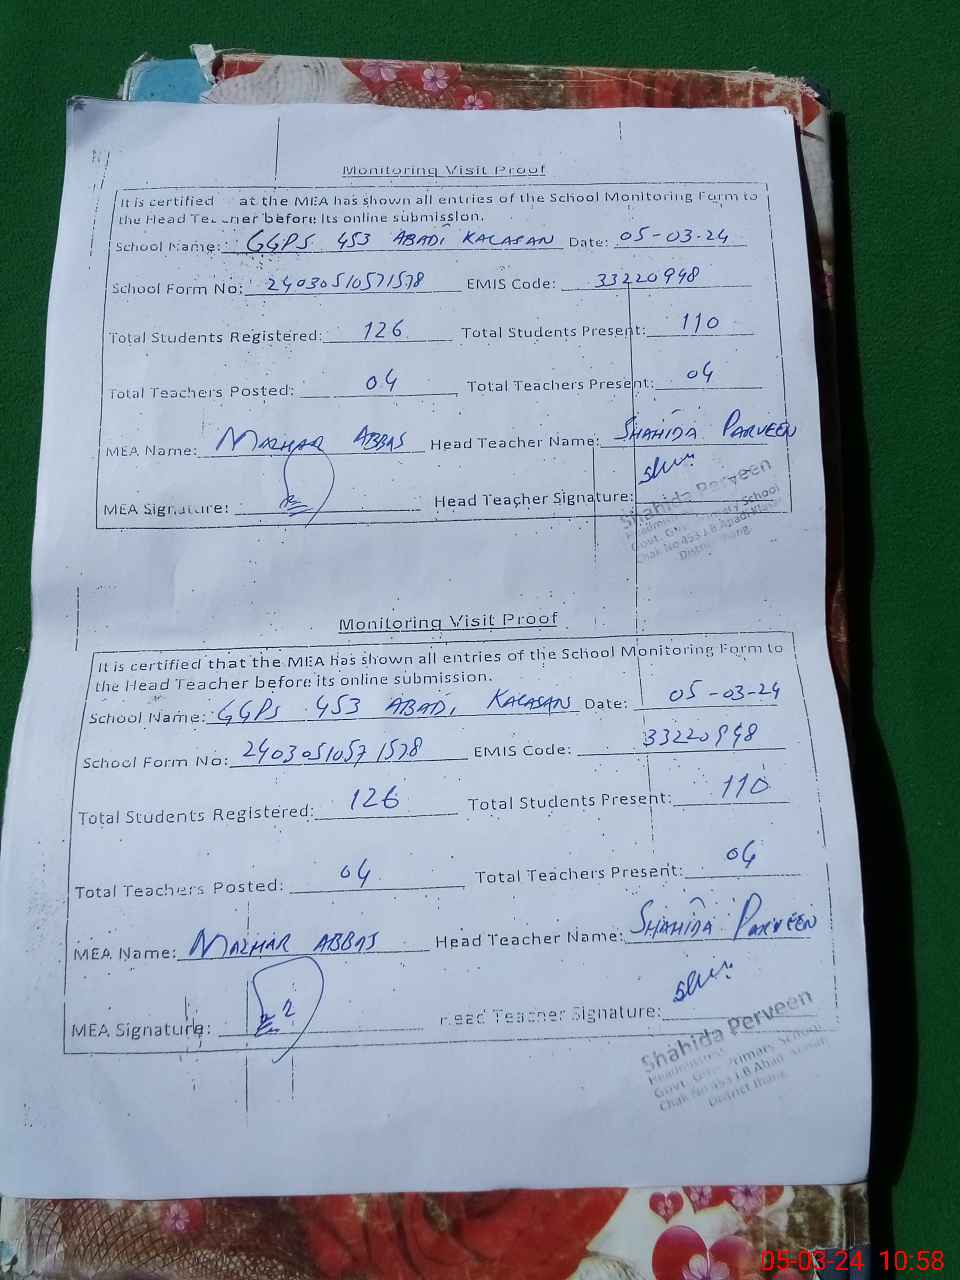 Monitoring Visit Proof
It is certified at the MEA has shown all entries of the School Monitoring Form to
the Head Teacher before its online submission.
School Name: GGPS 453 ABADI KALASAN Date: 05-03-24
School Form No: 24030510571578 EMIS Code: 33220948
Total Students Registered: 126 Total Students Present: 110
Total Teachers Posted: 04 Total Teachers Present: 04
MEA Name: MAZHAR ABBAS Head Teacher Name: SHAHIDA PARVEEN
MEA Signature: Head Teacher Signature:
Shahida Perveen
Govt. Primary School
Chak No 453 J.B Abadi
District Jhang
Monitoring Visit Proof
It is certified that the MEA has shown all entries of the School Monitoring Form to
the Head Teacher before its online submission.
School Name: GGPS 453 ABADI KALASAN Date: 05-03-24
School Form No: 24030510571578 EMIS Code: 33220948
Total Students Registered: 126 Total Students Present: 110
Total Teachers Posted: 04 Total Teachers Present: 04
MEA Name: MAZHAR ABBAS Head Teacher Name: SHAHIDA PARVEEN
MEA Signature: Head Teacher Signature:
Shahida Perveen
Govt. Primary School
Chak No 453 J.B Abadi
District Jhang
05-03-24 10:58